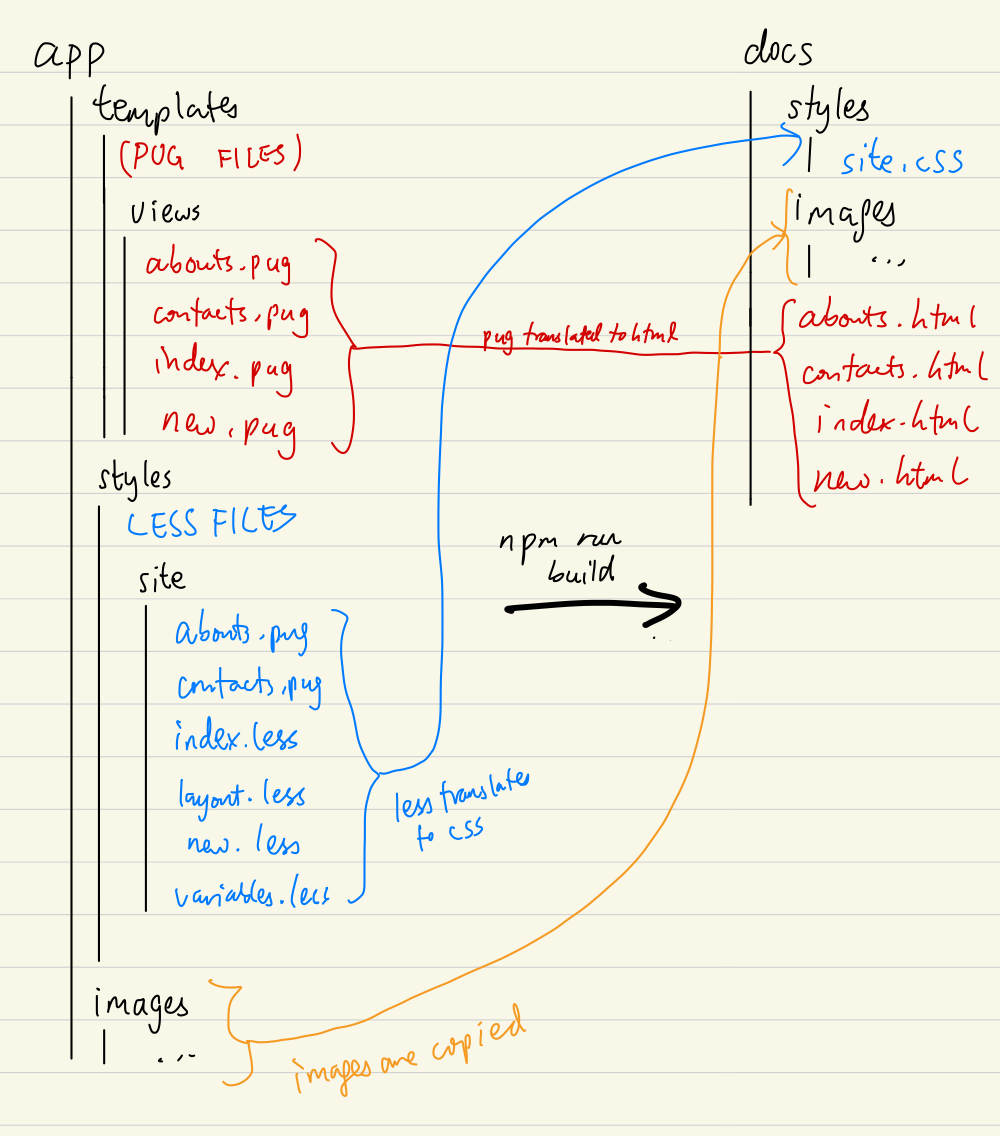 app
templates
(PUG FILES)
views
abouts.pug
contacts.pug
index.pug
new.pug
styles
LESS FILES
site
abouts.pug
contacts.pug
index.less
layout.less
new.less
variables.less
images
...
pug translated to html
less translates
to css
images are copied
npm run
build
docs
styles
site.css
images
...
abouts.html
contacts.html
index.html
new.html